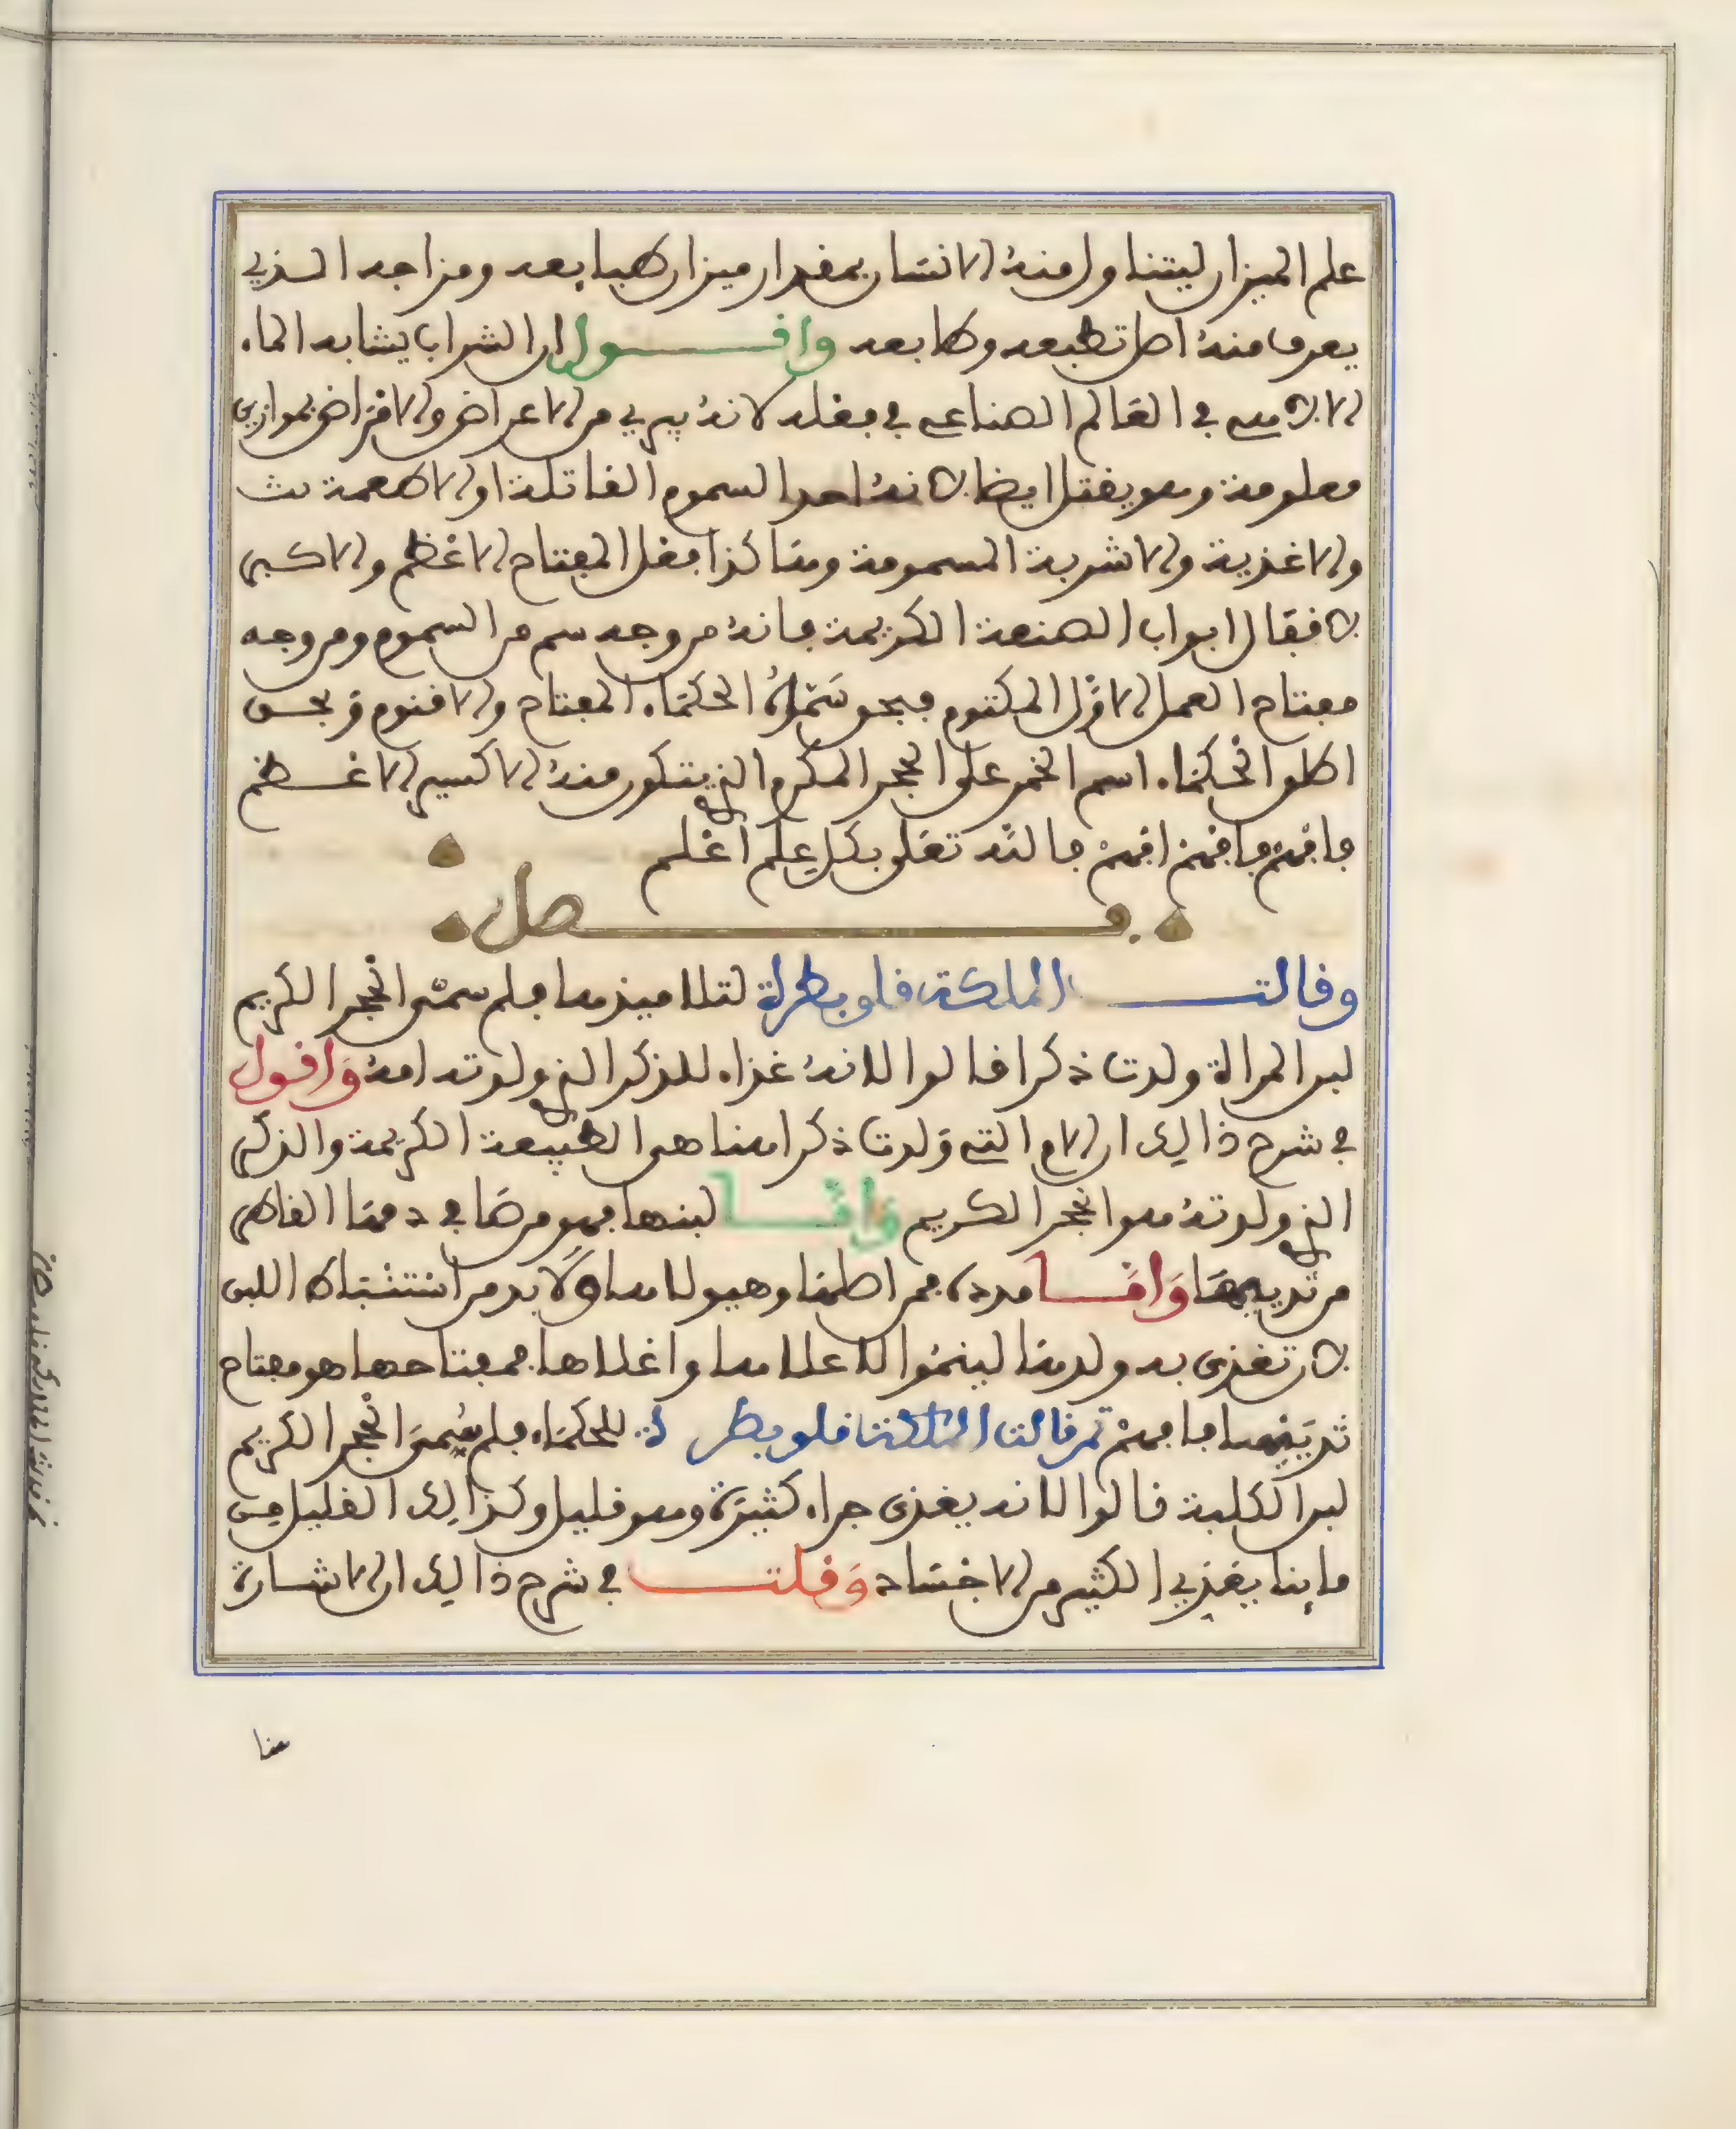 علم الميزان ليتناول منه الانسان بمقدار ميزان طبايعه ومزاجه الذي
يعرف منه اصل تطبعه وطابعه واقول ان الشراب يشابه الماء
الالاهي في العالم الصناعي في فعله لانه يبري من الاعراض والامراض بموازين
معلومة وهو يقتل ايضا لانه احد السموم القاتلة او الاطعمة
والاغذية والاشربة المسمومة وهاكذا فعل المفتاح الاعظم والاكبر
لاقفال ابواب الصنعة الكريمة فانه من وجه سم من السموم ومن وجه
مفتاح العمل الاول المكتوم فبحق سموه الحكماء المفتاح والاقنوم وبحق
اطلقوا الحكماء اسم الخمر على الحجر المكرم الذي يتكون منه الاكسير الاعظم
فافهم فافهم افهم فالله تعلى بكل علم اعلم
فصل
وقالت الملكة قلوبطرة لتلاميذها فلم سمي الحجر الكريم
لبن المراة ولدت ذكرا قالوا لانه غذاء للذكر الذي ولدته امه واقول
في شرح ذالك ان الام التي ولدت ذكرا هنا هي الطبيعة الكريمة والذكر
الذي ولدته هو الحجر الكريم واما لبنها فهو مرضا في دهنا القاطر
من ثدييها واما فمن اطما وهيولاها ولا بد من استنباط اللبن
لان تغذي به ولدها لينموا لاعلاها واغلاها فمفتاحها هو مفتاح
ثدييها فافهم ثم قالت الملكة قلوبطرة للحكماء فلم سمي الحجر الكريم
لبن الكلبة قالوا لانه يغذي جراء كثيرة وهو قليل وكذالك القليل من
ماينا يغذي الكثير من الاجساد وقلت في شرح ذالك ان الاشارة
هنا